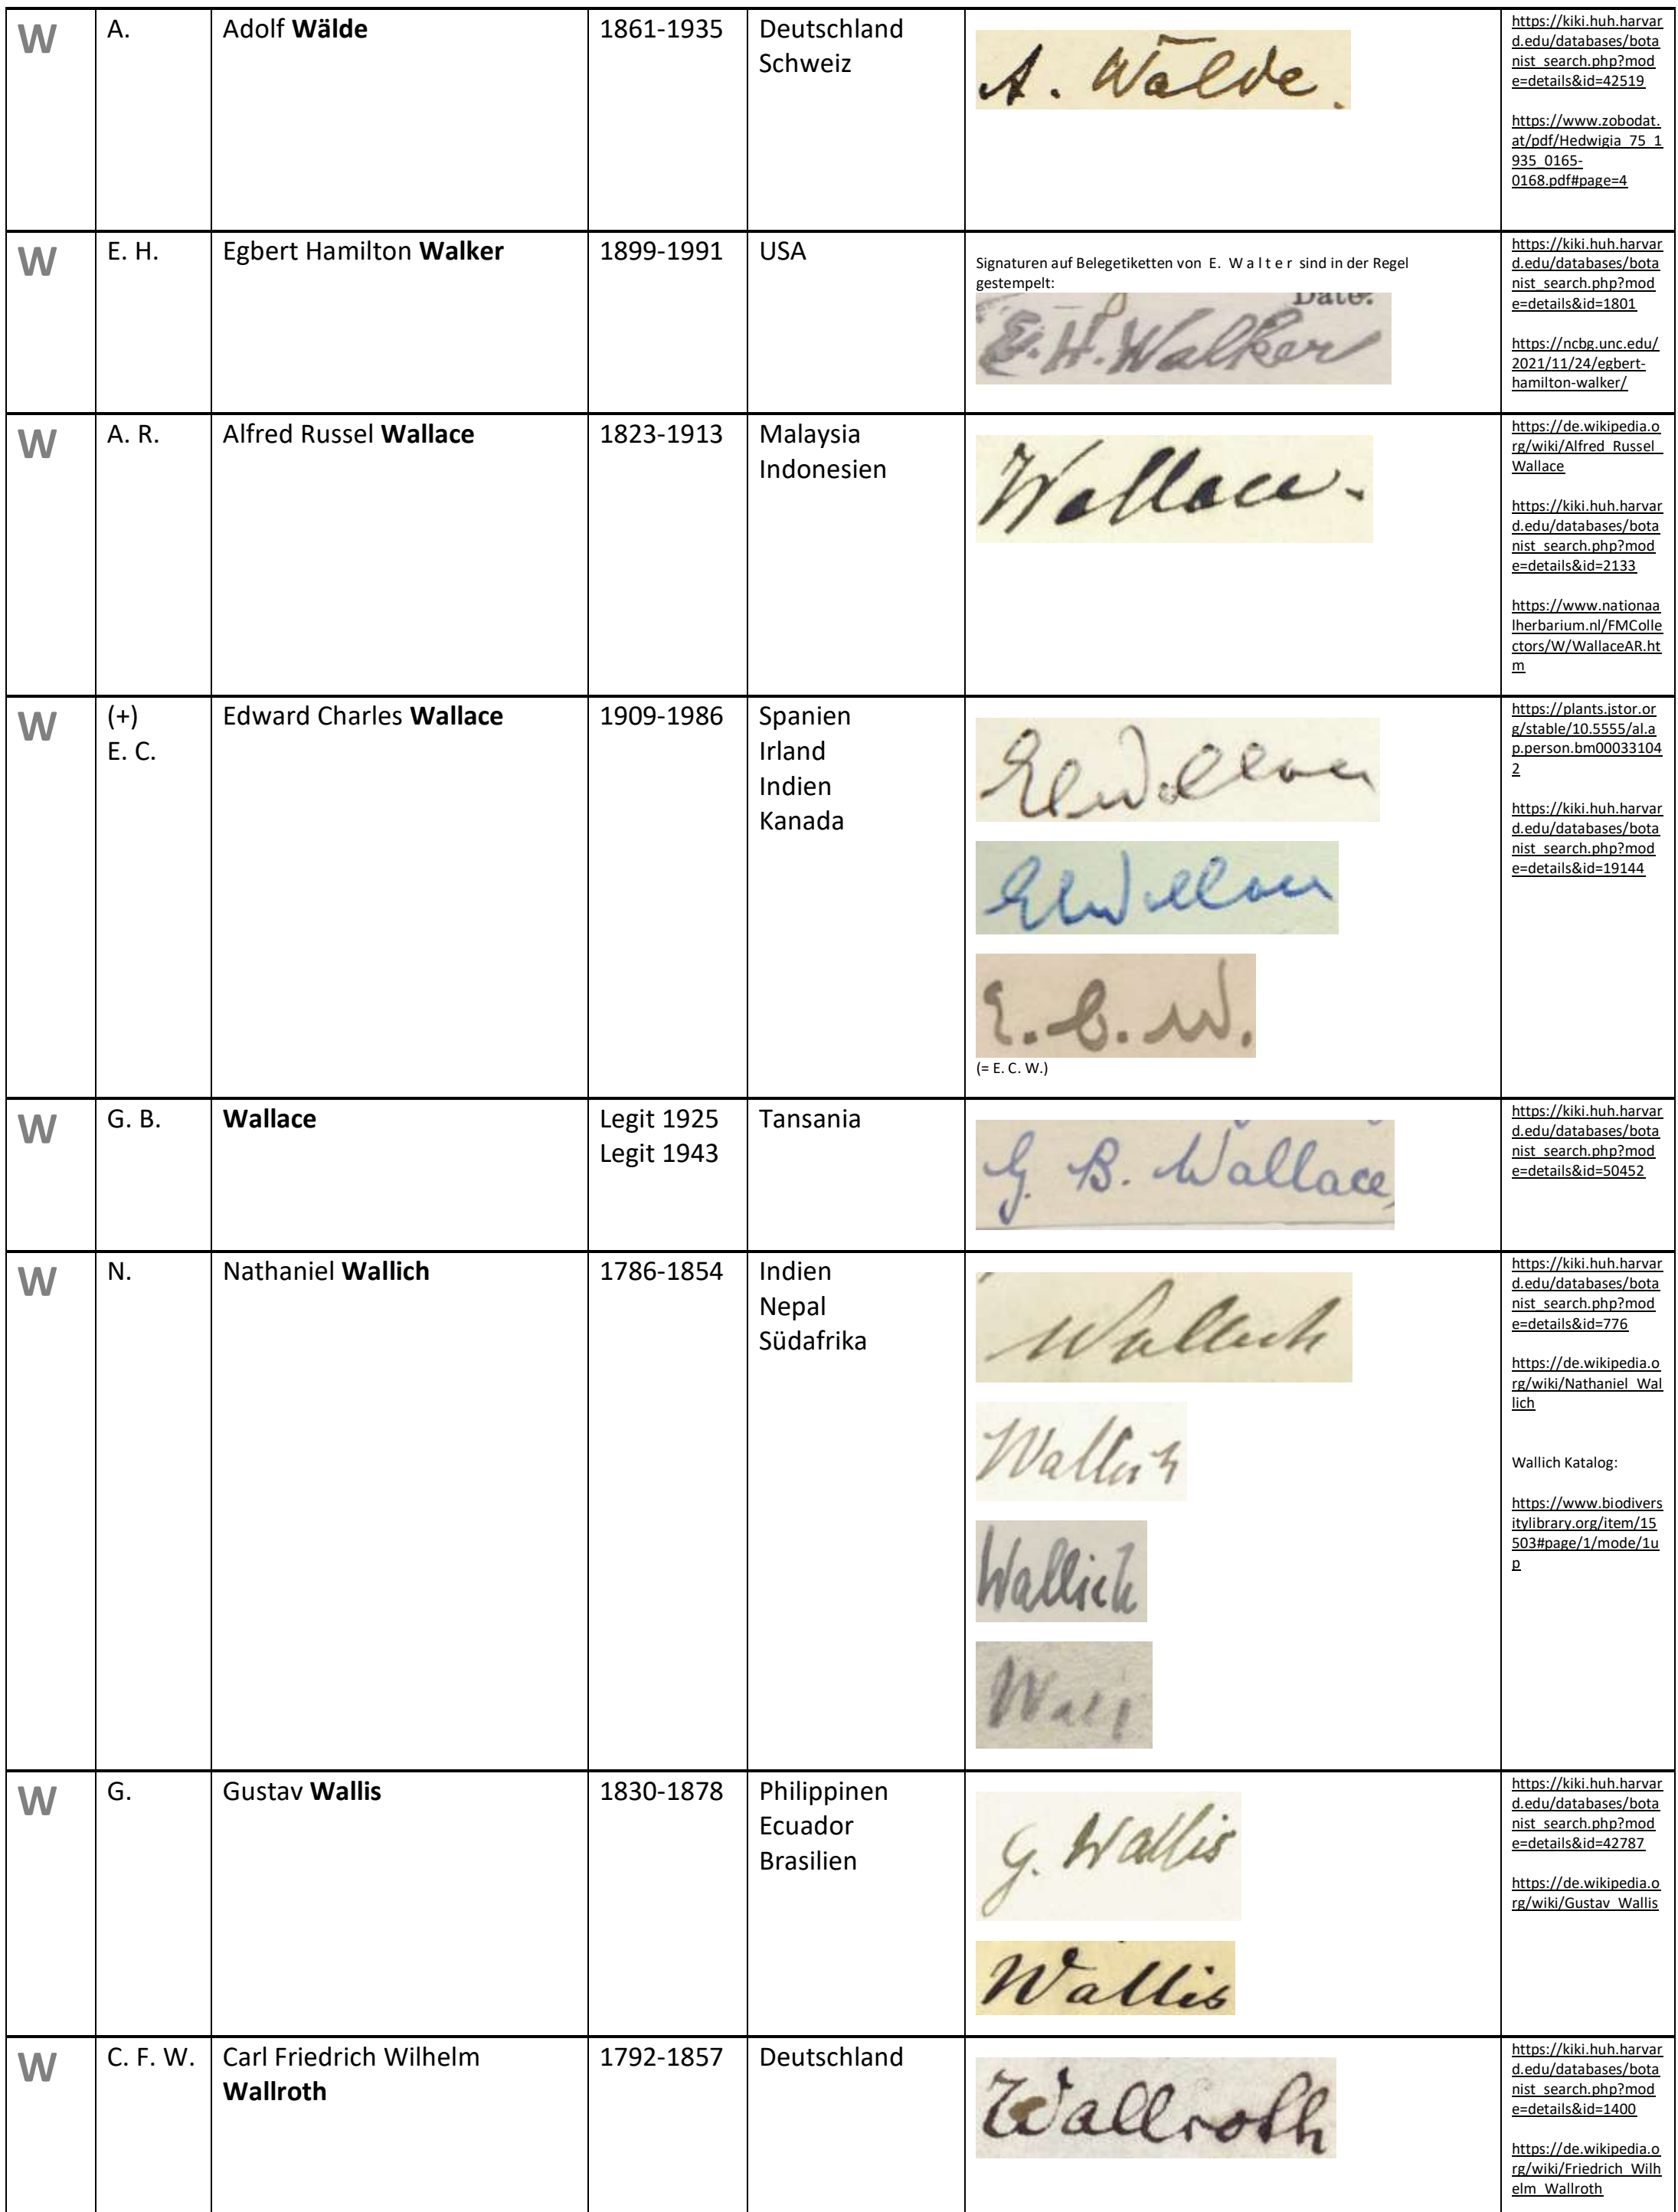 W A. Adolf Wälde 1861-1935 Deutschland
Schweiz
A. Wälde.
https://kiki.huh.harvar
d.edu/databases/bota
nist_search.php?mod
e=details&id=42519
https://www.zobodat.
at/pdf/Hedwigia_75_1
935_0165-
0168.pdf#page=4
W E. H. Egbert Hamilton Walker 1899-1991 USA
Signaturen auf Belegetiketten von E. W a l t e r sind in der Regel
gestempelt:
Date.
E. H. Walker
https://kiki.huh.harvar
d.edu/databases/bota
nist_search.php?mod
e=details&id=1801
https://ncbg.unc.edu/
2021/11/24/egbert-
hamilton-walker/
W A. R. Alfred Russel Wallace 1823-1913 Malaysia
Indonesien
Wallace.
https://de.wikipedia.o
rg/wiki/Alfred_Russel_
Wallace
https://kiki.huh.harvar
d.edu/databases/bota
nist_search.php?mod
e=details&id=2133
https://www.nationaa
lherbarium.nl/FMColle
ctors/W/WallaceAR.ht
m
W (+) Edward Charles Wallace 1909-1986 Spanien
E. C. Irland
Indien
Kanada
ECWallace
ECWallace
E. C. W.
(= E. C. W.)
https://plants.jstor.or
g/stable/10.5555/al.a
p.person.bm00033104
2
https://kiki.huh.harvar
d.edu/databases/bota
nist_search.php?mod
e=details&id=19144
W G. B. Wallace Legit 1925 Tansania
Legit 1943
G. B. Wallace,
https://kiki.huh.harvar
d.edu/databases/bota
nist_search.php?mod
e=details&id=50452
W N. Nathaniel Wallich 1786-1854 Indien
Nepal
Südafrika
Wallich
Wallich
Wallich
https://kiki.huh.harvar
d.edu/databases/bota
nist_search.php?mod
e=details&id=776
https://de.wikipedia.o
rg/wiki/Nathaniel_Wal
lich
Wallich Katalog:
https://www.biodivers
itylibrary.org/item/15
503#page/1/mode/1u
p
W G. Gustav Wallis 1830-1878 Philippinen
Ecuador
Brasilien
G. Wallis
Wallis
https://kiki.huh.harvar
d.edu/databases/bota
nist_search.php?mod
e=details&id=42787
https://de.wikipedia.o
rg/wiki/Gustav_Wallis
W C. F. W. Carl Friedrich Wilhelm 1792-1857 Deutschland
Wallroth
Wallroth
https://kiki.huh.harvar
d.edu/databases/bota
nist_search.php?mod
e=details&id=1400
https://de.wikipedia.o
rg/wiki/Friedrich_Wilh
elm_Wallroth